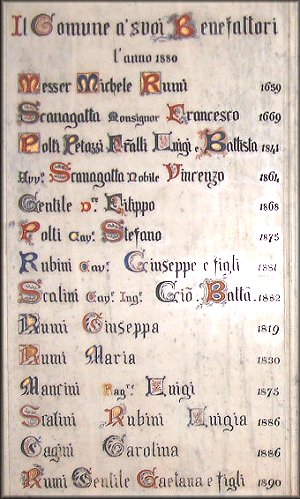 Il Comune a' suoi Benefattori
l'anno 1880
Messer Michele Rumi 1659
Scanagatta Monsignor Francesco 1669
Polti Petazzi Fr.lli Luigi e Battista 1841
Avv. Scanagatta Nobile Vincenzo 1864
Gentile D.re Filippo 1868
Polti Cav. Stefano 1875
Rubini Cav. Giuseppe e figli 1881
Scalini Cav. Ing. Gio. Batta. 1882
Rumi Giuseppa 1819
Rumi Maria 1830
Mancini Rag.re Luigi 1875
Scalini Rubini Luigia 1886
Cagni Carolina 1886
Rumi Gentile Gaetana e figli 1890